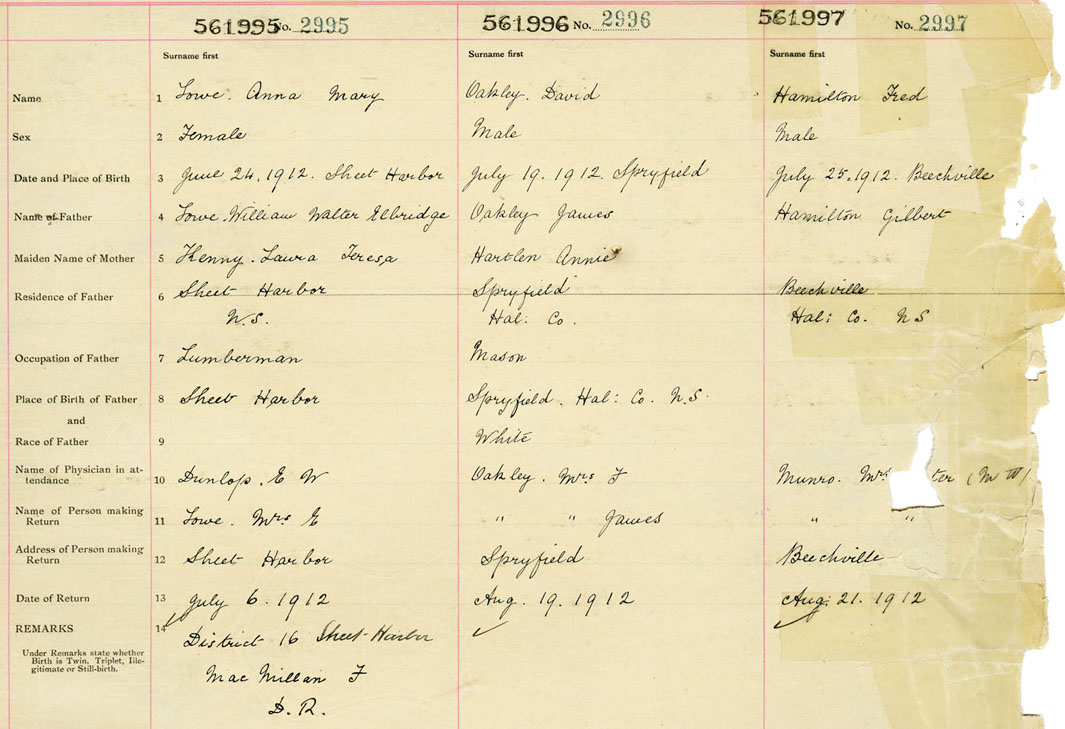 561995 No. 2995 561996 No. 2996 561997 No. 2997
Surname first Surname first Surname first
Name 1 Lowe. Anna Mary Oakley. David Hamilton Fred
Sex 2 Female Male Male
Date and Place of Birth 3 June 24. 1912. Sheet Harbor July 19. 1912. Spryfield July 25. 1912. Beechville
Name of Father 4 Lowe. William Walter Elbridge Oakley James Hamilton Gilbert
Maiden Name of Mother 5 Kenny. Laura Teresa Hartlen Annie
Residence of Father 6 Sheet Harbor Spryfield Beechville
N.S. Hal: Co. Hal: Co. N S
Occupation of Father 7 Lumberman Mason
Place of Birth of Father 8 Sheet Harbor Spryfield. Hal: Co. N.S.
and
Race of Father 9 White
Name of Physician in at-
tendance 10 Dunlop. E W Oakley. Mrs F Munro. Mrs ter (M W)
Name of Person making
Return 11 Lowe. Mrs E " " James " "
Address of Person making
Return 12 Sheet Harbor Spryfield Beechville
Date of Return 13 July 6. 1912 Aug. 19. 1912 Aug: 21. 1912
REMARKS 14 District 16 Sheet Harbor
Under Remarks state whether
Birth is Twin. Triplet, Ille-
gitimate or Still-birth.
Mac Millan F
D. R.